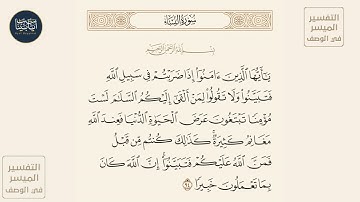 سُورَةُ النِّسَاءِ
بِسْمِ اللَّهِ الرَّحْمَٰنِ الرَّحِيمِ
يَٰٓأَيُّهَا ٱلَّذِينَ ءَامَنُوٓا۟ إِذَا ضَرَبْتُمْ فِى سَبِيلِ ٱللَّهِ
فَتَبَيَّنُوا۟ وَلَا تَقُولُوا۟ لِمَنْ أَلْقَىٰٓ إِلَيْكُمُ ٱلسَّلَٰمَ لَسْتَ
مُؤْمِنًا تَبْتَغُونَ عَرَضَ ٱلْحَيَوٰةِ ٱلدُّنْيَا فَعِندَ ٱللَّهِ
مَغَانِمُ كَثِيرَةٌ ۚ كَذَٰلِكَ كُنتُم مِّن قَبْلُ
فَمَنَّ ٱللَّهُ عَلَيْكُمْ فَتَبَيَّنُوٓا۟ ۚ إِنَّ ٱللَّهَ كَانَ
بِمَا تَعْمَلُونَ خَبِيرًا ٩٤
التفسير
الميسر
في الوصف
التفسير
الميسر
في الوصف